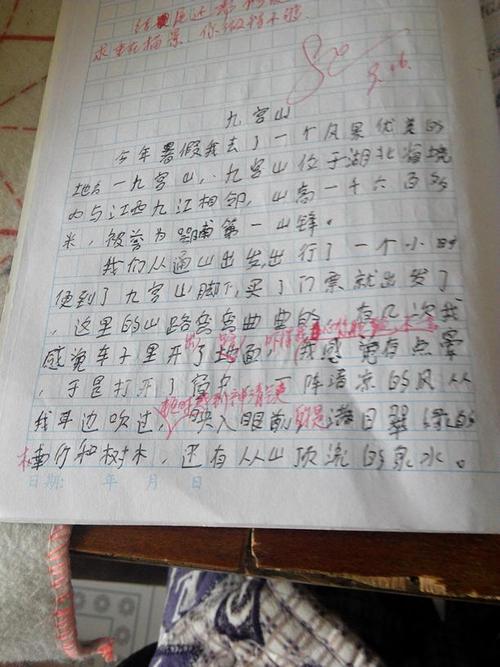 求重在描景 你做得不够
80
九宫山
今年暑假我去了一个风景优美的
地方—九宫山,九宫山位于湖北省境
内与江西九江相邻,山高一千六百多
米,被誉为 第一山峰。
我们从通山出发,出行了一个小时
便到了九宫山脚下,买了门票就出发了
,这里的山路弯弯曲曲的 有几次我
感觉车子里开了地面 我感觉有点晕
,于是打开了窗户 一阵清凉的风从
暂时感到神清气爽
我耳边吹过,映入眼前 是满目翠绿的
楠竹和树木,还有从山顶流的泉水。
日期: 年 月 日